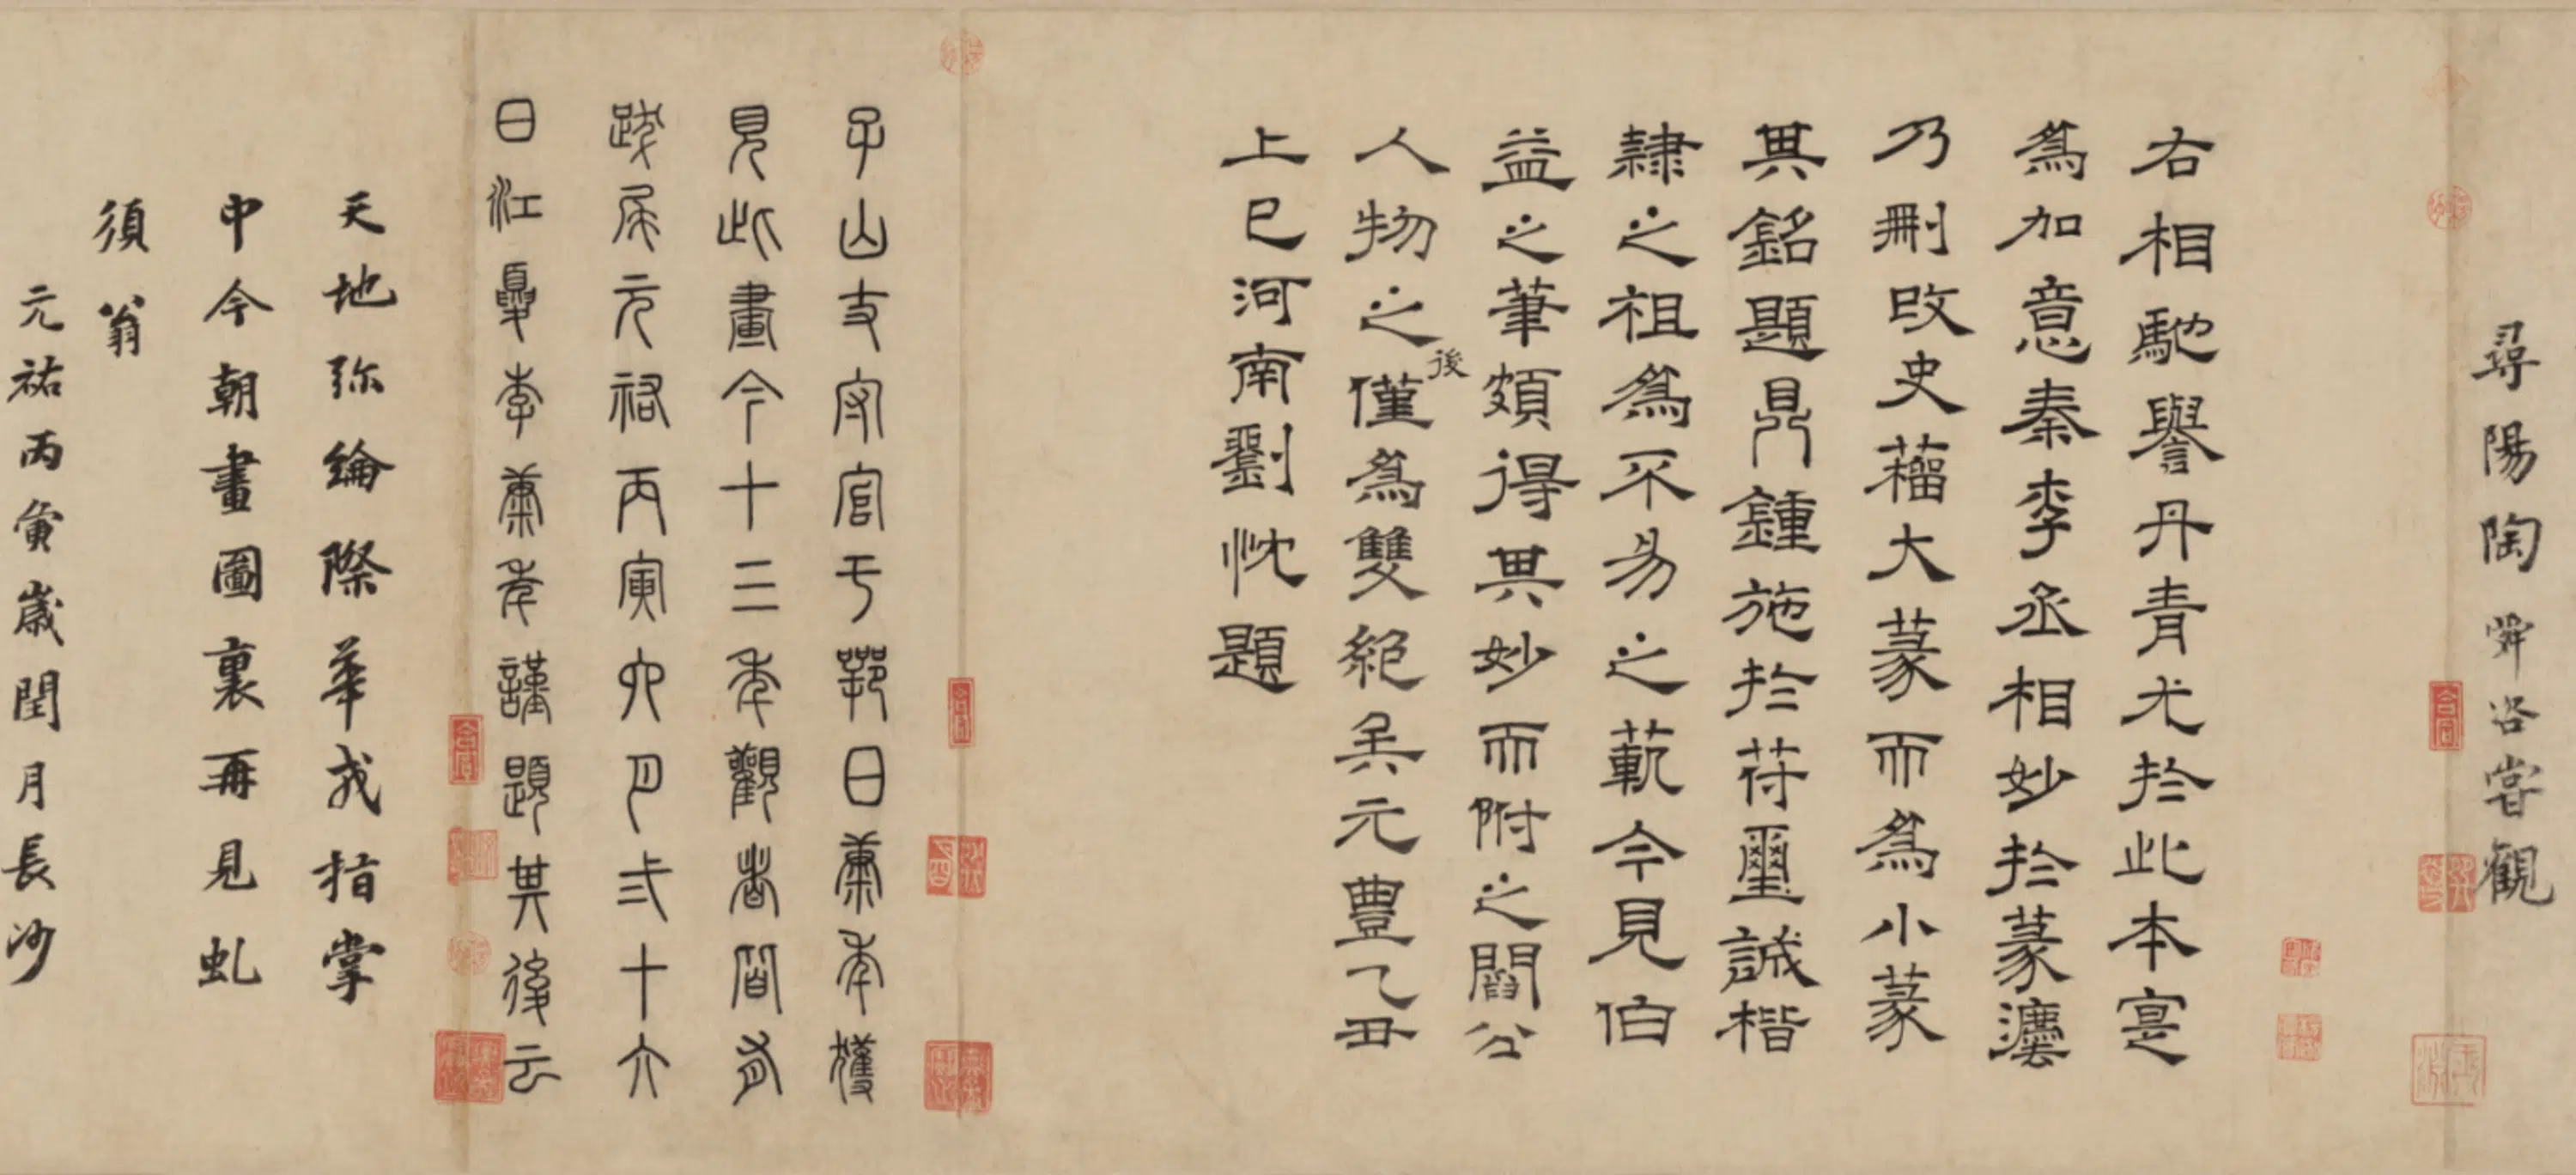 尋陽陶舜咨嘗觀
右相馳譽丹青尤於此本寔
為加意秦李丞相妙於篆灋
乃刪改史籀大篆而為小篆
其銘題鼎鍾施於符璽誠楷
隸之祖為不易之範今見伯
益之筆頗得其妙而附之閻公
人物之後僅為雙絕矣元豐乙丑
上巳河南劉忱題
子山丈守官于鄂日康年獲
見此畫今十三年觀者間有
跋尾元祐丙寅六月弍十六
日江夏李康年謹題其後云
天地弥綸際華戎指掌
中今朝畫圖裏再見虬
須翁
元祐丙寅歲閏月長沙